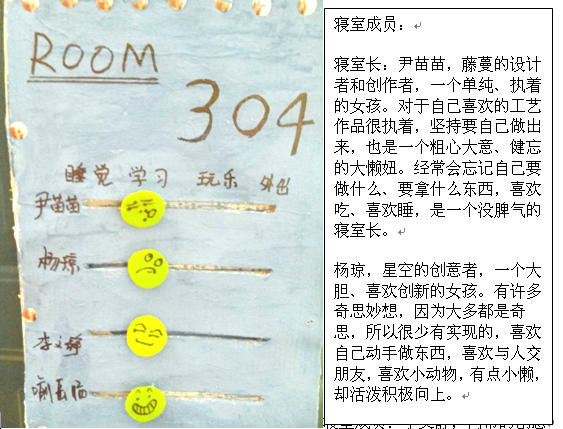 ROOM
304
睡觉 学习 玩乐 外出
尹苗苗
杨琼
寝室成员：
寝室长：尹苗苗，藤蔓的设计
者和创作者，一个单纯、执着
的女孩。对于自己喜欢的工艺
作品很执着，坚持要自己做出
来，也是一个粗心大意、健忘
的大懒妞。经常会忘记自己要
做什么、要拿什么东西，喜欢
吃、喜欢睡，是一个没脾气的
寝室长。
杨琼，星空的创意者，一个大
胆、喜欢创新的女孩。有许多
奇思妙想，因为大多都是奇
思，所以很少有实现的，喜欢
自己动手做东西，喜欢与人交
朋友，喜欢小动物，有点小懒，
却活泼积极向上。